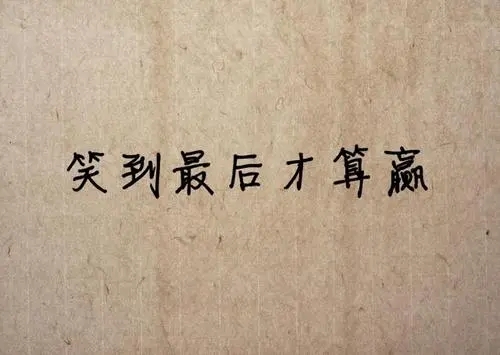 笑到最后才算赢